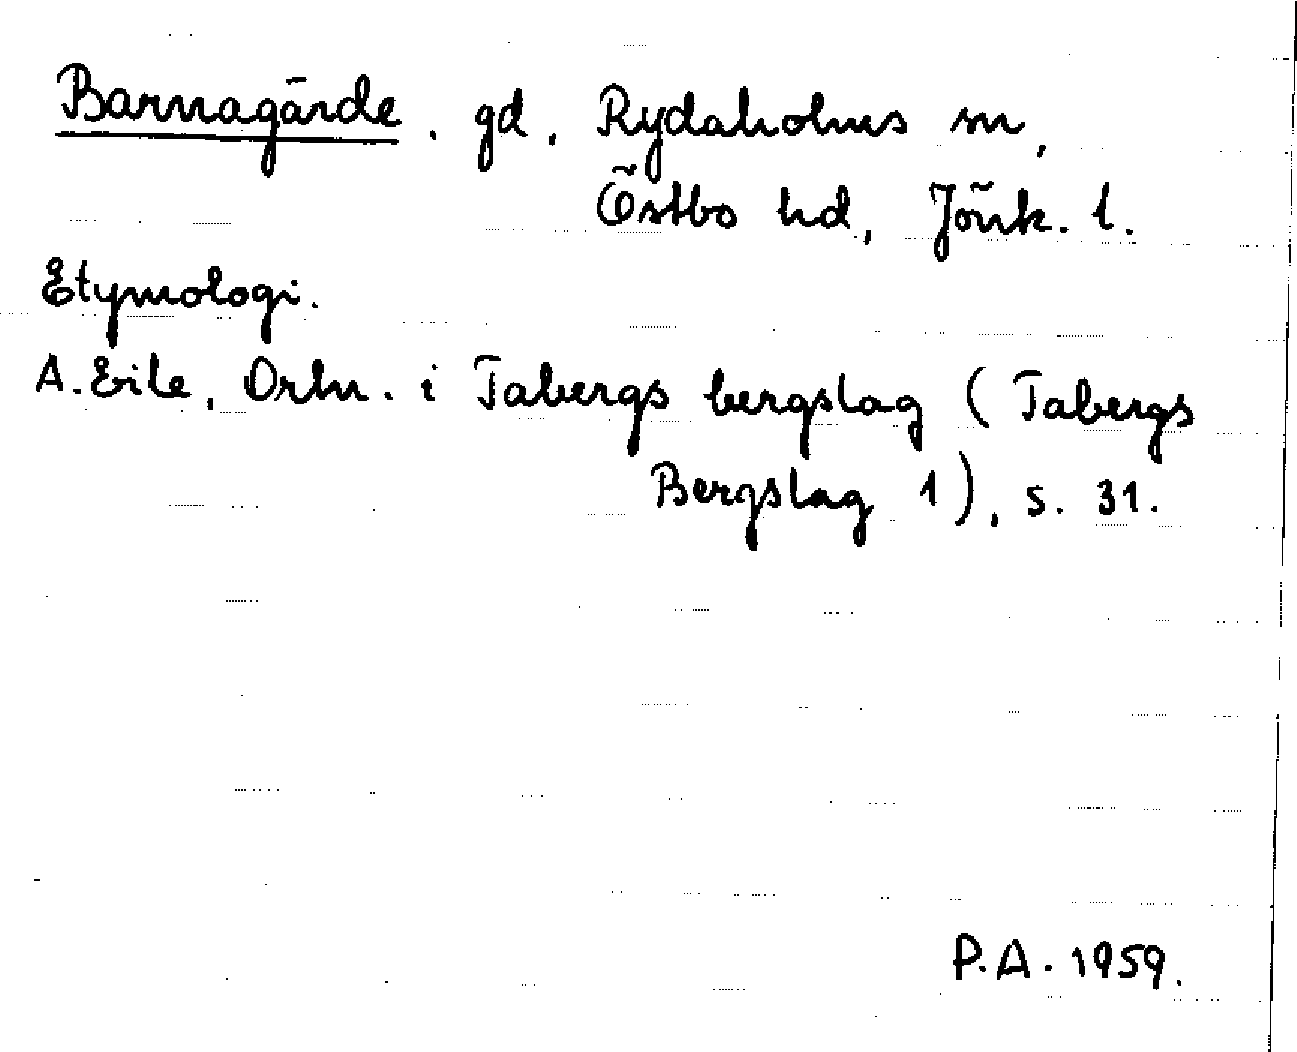 Barnagärde, gd, Rydaholms sn,
Östbo hd, Jönk. l.
Etymologi.
A. Eile, Ortn. i Tabergs bergslag (Tabergs
Bergslag 1), s. 31.
P.A. 1959.